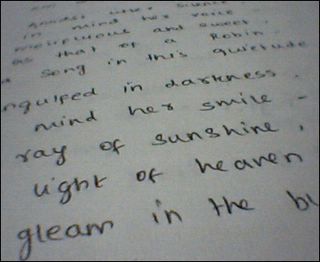 amidst utter silence
in mind her voice
mellifluous and sweet
as that of a Robin
song in this quietude
ngulfed in darkness.
mind her smile -
ray of sunshine,
light of heaven
gleam in the bl